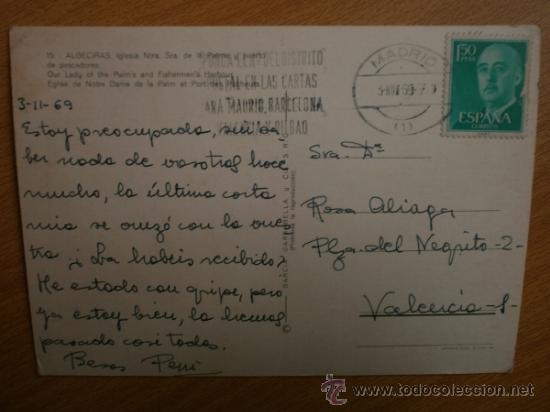 15 - ALGECIRAS, Iglesia Ntra. Sra. de la Palma y puerto
de pescadores.
Our Lady of the Palm's and Fishermen's Harbour
Eglise de Notre Dame de la Palm et Port de Pêcheurs
PONGA EL Nº DEL DISTRITO
POSTAL EN LAS CARTAS
PARA MADRID, BARCELONA,
VALENCIA Y BILBAO
MADRID
(1)
1,50
PTAS
ESPAÑA
CORREOS
3-11-69
Estoy preocupada, sin sa-
ber nada de vosotras hace
mucho, la última carta
mia se cruzó con la vues-
tra ¿La habeis recibido?
He estado con gripe, pero
ya estoy bien, la hemos
pasado casi todos.
Besos Pepi
Sra. Dª
Rosa Aliaga
Plza. del Negrito-2-
Valencia-1-
GARCIA GARRABELLA y CIA
todocoleccion.net